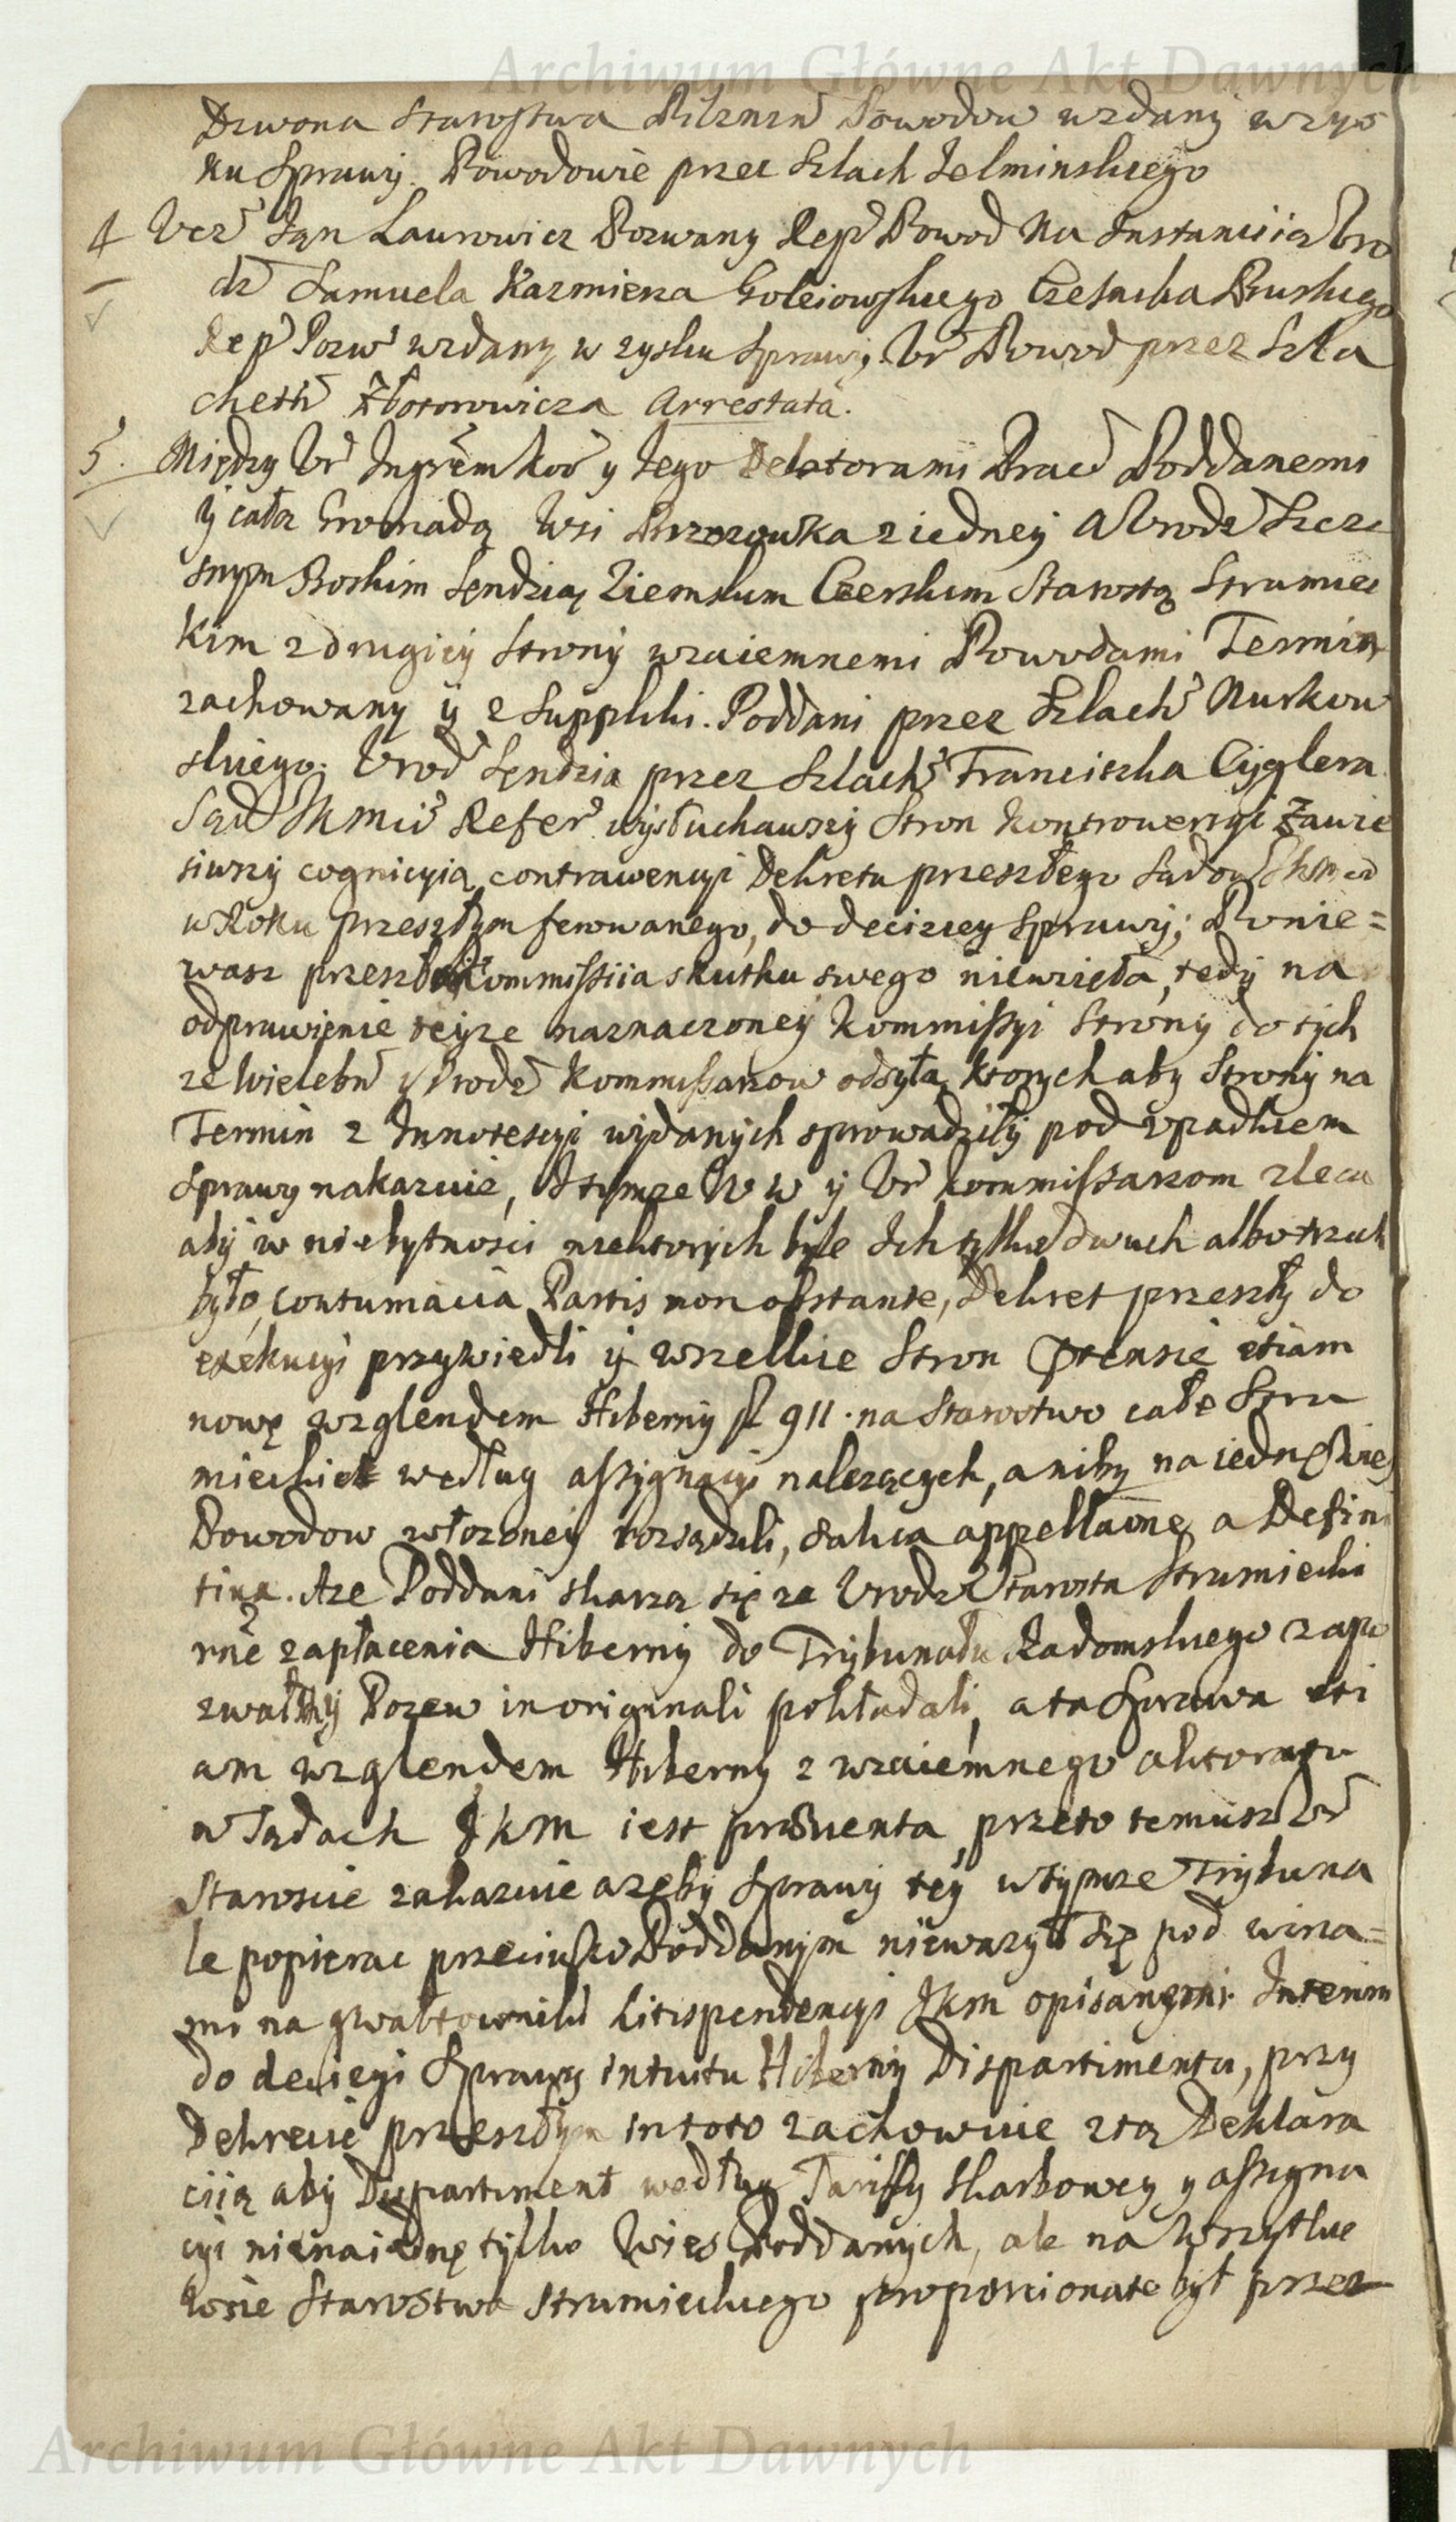 Archiwum Główne Akt Dawnych
Drwona Starostwa Pilznen Powodow wzdany w zys
ku Sprawy. Powodowie przez Szlach Zelminskiego
4 Ucz Jan Laurowicz Pozwany Rep Powod Na Instanciią Uro
dz Samuela Kazmierza Goleiowskiego Czesnika Pruskiego
Rep Pozw wzdany w zysku Sprawy. Ur Powod przez Szla
cheth Złotorowicza Arrestata.
5. Między Ur Jnstem Kor y Jego Delatorami Prac Poddanemi
y całą Gromadą Wsi Brzozowka z iedney A Urodz Szcze
snym Boskim Sendzią Ziemskim Czerskim Starostą Strumiec
kim z drugiey Strony wzaiemnemi Powodami Termin
zachowany y z Suppliki. Poddani przez Szlach Nurkow
skiego. Urod Sendzia przez Szlach Franciszka Cyglera
Sąd JKMci Refer wysłuchawszy Stron Kontrowersyi Zawie
siwszy cognicyią contrawencyi Dekretu przeszłego Sądow JKMci
w Roku przeszłym ferowanego, do deciziey Sprawy; Ponie=
wasz przeszła Kommissiia skutku swego niewzięła, tedy na
odprawienie teyze naznaczoney Kommissyi Strony do tych
ze Wielebn y Urodz Kommissarzow odsyła, ktorych aby Strony na
Termin z Innotescyi wydanych sprowadziły pod upadkiem
Sprawy nakazuie, Itymze W W y Ur Kommissarzom zleca
aby w niebytnosci niektorych byle Ich tylko dwuch albo trzech
było, contumacia Partis non obstante, Dekret przeszły do
exekucyi przywiedli y wszelkie Stron Ptensie etiam
nowę względem Hiberny fl 911. na Starostwo całe Stru
mieckie według assygnacyi należących, a niby na iednę Wieś
Powodow włozoney rozsądzili, salua appellaone a Defini
tiua. Aze Poddani skarzą się ze Urodz Starosta Strumiecki
rne zapłacenia Hiberny do Trybunału Radomskiego zapo
zwał y Pozew in originali pokładali, a ta Sprawa eti
am względem Hiberny z wzaiemnego aktoratu
w Sądach JKM iest prŏuenta, przeto temusz Ur
Staroscie zakazuie azęby Sprawy tey w tymze Trybuna
le popierac przeciwko Poddanym niewazył się pod wina=
mi na gwałtownikow Litispendencyi JKM opisanymi. Interim
do decisyi Sprawy intuitu Hiberny Dispartimentu, przy
Dekrecie przeszłym in toto zachowuie z tą Deklara
ciią aby Dispartiment według Taryffy Skarbowey y assigna
cyi nie na iednę tylko Wieś Poddanych, ale na Wszytkie
Wsie Starostwa Strumieckiego proporcionate był przez
Archiwum Główne Akt Dawnych